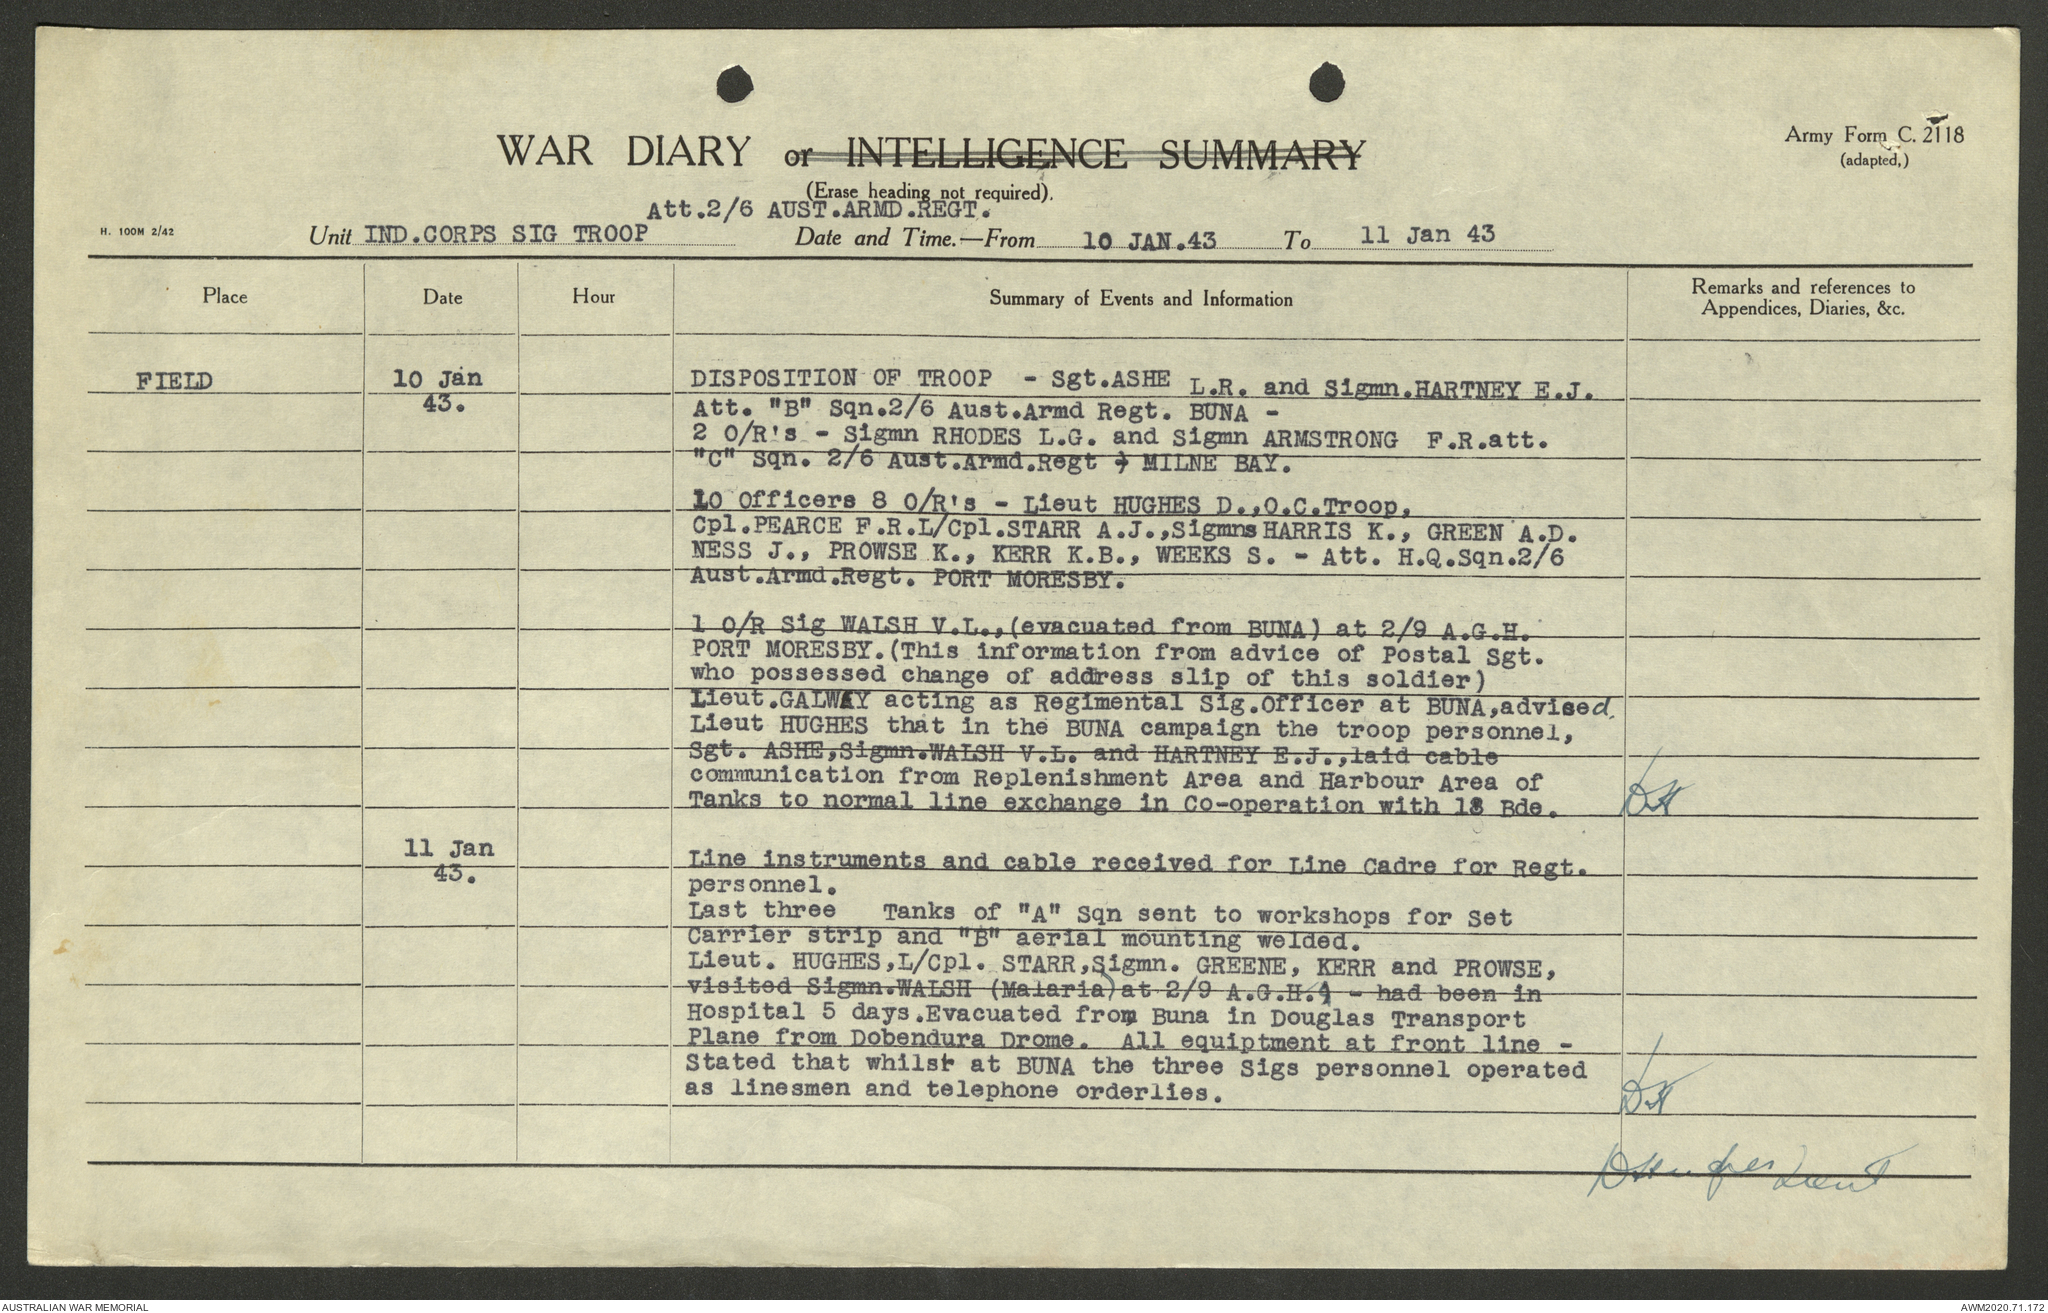 Army Form C. 2118
(adapted,)
WAR DIARY or INTELLIGENCE SUMMARY
(Erase heading not required).
Att.2/6 AUST.ARMD.REGT.
H. 100M 2/42
Unit IND.CORPS SIG TROOP Date and Time.—From 10 JAN.43 To 11 Jan 43
Place Date Hour Summary of Events and Information Remarks and references to
Appendices, Diaries, &c.
FIELD 10 Jan DISPOSITION OF TROOP - Sgt.ASHE L.R. and Sigmn.HARTNEY E.J.
43. Att. "B" Sqn.2/6 Aust.Armd Regt. BUNA -
2 O/R's - Sigmn RHODES L.G. and Sigmn ARMSTRONG F.R.att.
"C" Sqn. 2/6 Aust.Armd.Regt MILNE BAY.
10 Officers 8 O/R's - Lieut HUGHES D.,O.C.Troop,
Cpl.PEARCE F.R.L/Cpl.STARR A.J.,Sigmns HARRIS K., GREEN A.D.
NESS J., PROWSE K., KERR K.B., WEEKS S. - Att. H.Q.Sqn.2/6
Aust.Armd.Regt. PORT MORESBY.
1 O/R Sig WALSH V.L.,(evacuated from BUNA) at 2/9 A.G.H.
PORT MORESBY.(This information from advice of Postal Sgt.
who possessed change of address slip of this soldier)
Lieut.GALWAY acting as Regimental Sig.Officer at BUNA,advised.
Lieut HUGHES that in the BUNA campaign the troop personnel,
Sgt. ASHE,Sigmn.WALSH V.L. and HARTNEY E.J.,laid cable
communication from Replenishment Area and Harbour Area of
Tanks to normal line exchange in Co-operation with 18 Bde. DH
11 Jan Line instruments and cable received for Line Cadre for Regt.
43. personnel.
Last three Tanks of "A" Sqn sent to workshops for Set
Carrier strip and "B" aerial mounting welded.
Lieut. HUGHES,L/Cpl. STARR,Sigmn. GREENE, KERR and PROWSE,
visited Sigmn.WALSH (Malaria) at 2/9 A.G.H. - had been in
Hospital 5 days.Evacuated from Buna in Douglas Transport
Plane from Dobendura Drome. All equiptment at front line -
Stated that whilst at BUNA the three Sigs personnel operated
as linesmen and telephone orderlies. DH
DHughes Lieut
AUSTRALIAN WAR MEMORIAL AWM2020.71.172